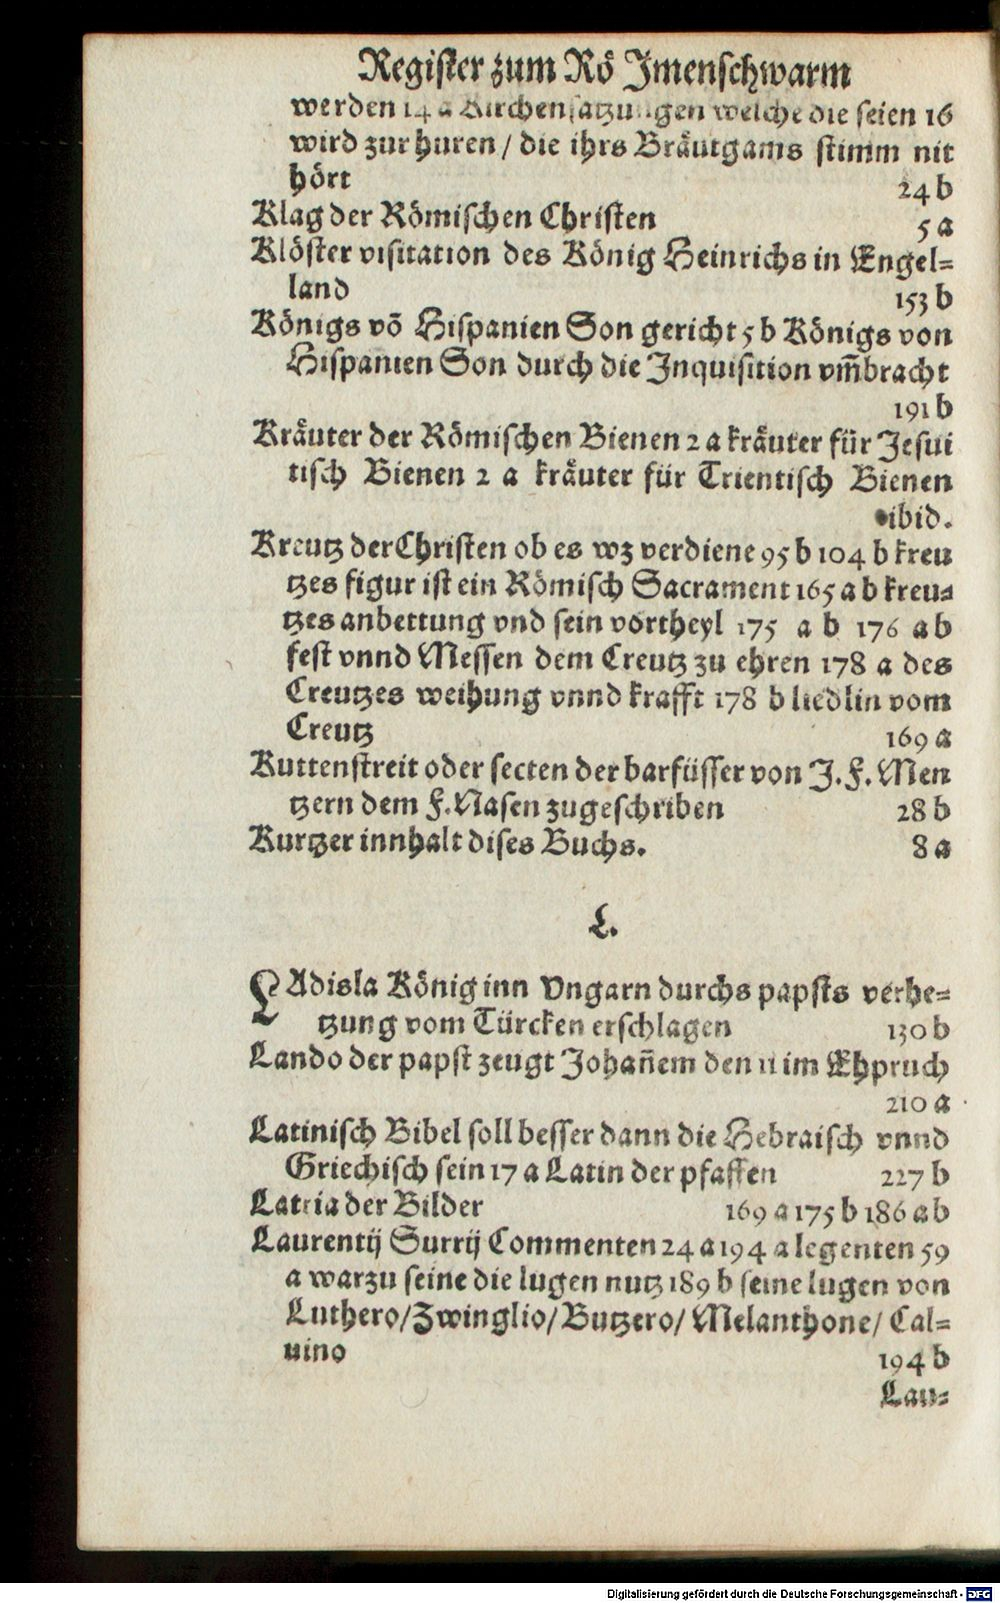 Register zum Rö Jmenschwarm
werden 14 a Kirchensatzungen welche die seien 16
wird zur huren / die ihrs Bräutgams stimm nit
hört 24 b
Klag der Römischen Christen 5 a
Klöster visitation des König Heinrichs in Engel=
land 153 b
Königs võ Hispanien Son gericht 5 b Königs von
Hispanien Son durch die Jnquisition vm̃bracht
191 b
Kräuter der Römischen Bienen 2 a kräuter für Jesui
tisch Bienen 2 a kräuter für Trientisch Bienen
ibid.
Kreutz der Christen ob es wz verdiene 95 b 104 b kreu
tzes figur ist ein Römisch Sacrament 165 a b kreu=
tzes anbettung vnd sein vortheyl 175 a b 176 a b
fest vnnd Messen dem Creutz zu ehren 178 a des
Creutzes weihung vnnd krafft 178 b liedlin vom
Creutz 169 a
Kuttenstreit oder secten der barfüsser von J. F. Men
tzern dem F. Nasen zugeschriben 28 b
Kurtzer innhalt dises Buchs. 8 a
L.
LAdisla König inn Vngarn durchs papsts verhe=
tzung vom Türcken erschlagen 130 b
Lando der papst zeugt Johañem den 11 im Ehpruch
210 a
Latinisch Bibel soll besser dann die Hebraisch vnnd
Griechisch sein 17 a Latin der pfaffen 227 b
Latria der Bilder 169 a 175 b 186 a b
Laurentij Surrij Commenten 24 a 194 a legenten 59
a warzu seine die lugen nutz 189 b seine lugen von
Luthero/Zwinglio/Butzero/Melanthone/Cal=
uino 194 b
Lau=
Digitalisierung gefördert durch die Deutsche Forschungsgemeinschaft - DFG